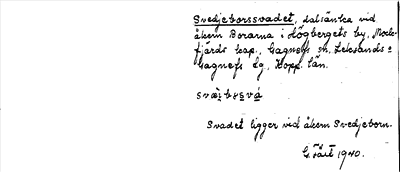 Svedjeborssvadet, dalsänka vid
åkern Borarna i Högbergets by, Mock-
fjärds kap., Gagnefs sn, Leksands o
Gagnefs tg, Kopp. län.
Svadet ligger vid åkern Svedjeborn.
1940.